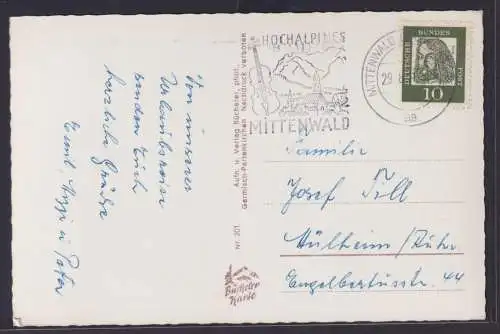 Von unserer
Urlaubsreise
senden Euch
herzliche Grüße
Peter
Nr. 201
Aufn. u. Verlag Büchster, phot.
Garmisch-Partenkirchen Nachdruck verboten
HOCHALPINES
MITTENWALD
MITTENWALD
29
aa
DEUTSCHE
BUNDES
POST
10
Familie
Josef Till
Mülheim/Ruhr
Engelbertusstr. 44
Büchster
Karte